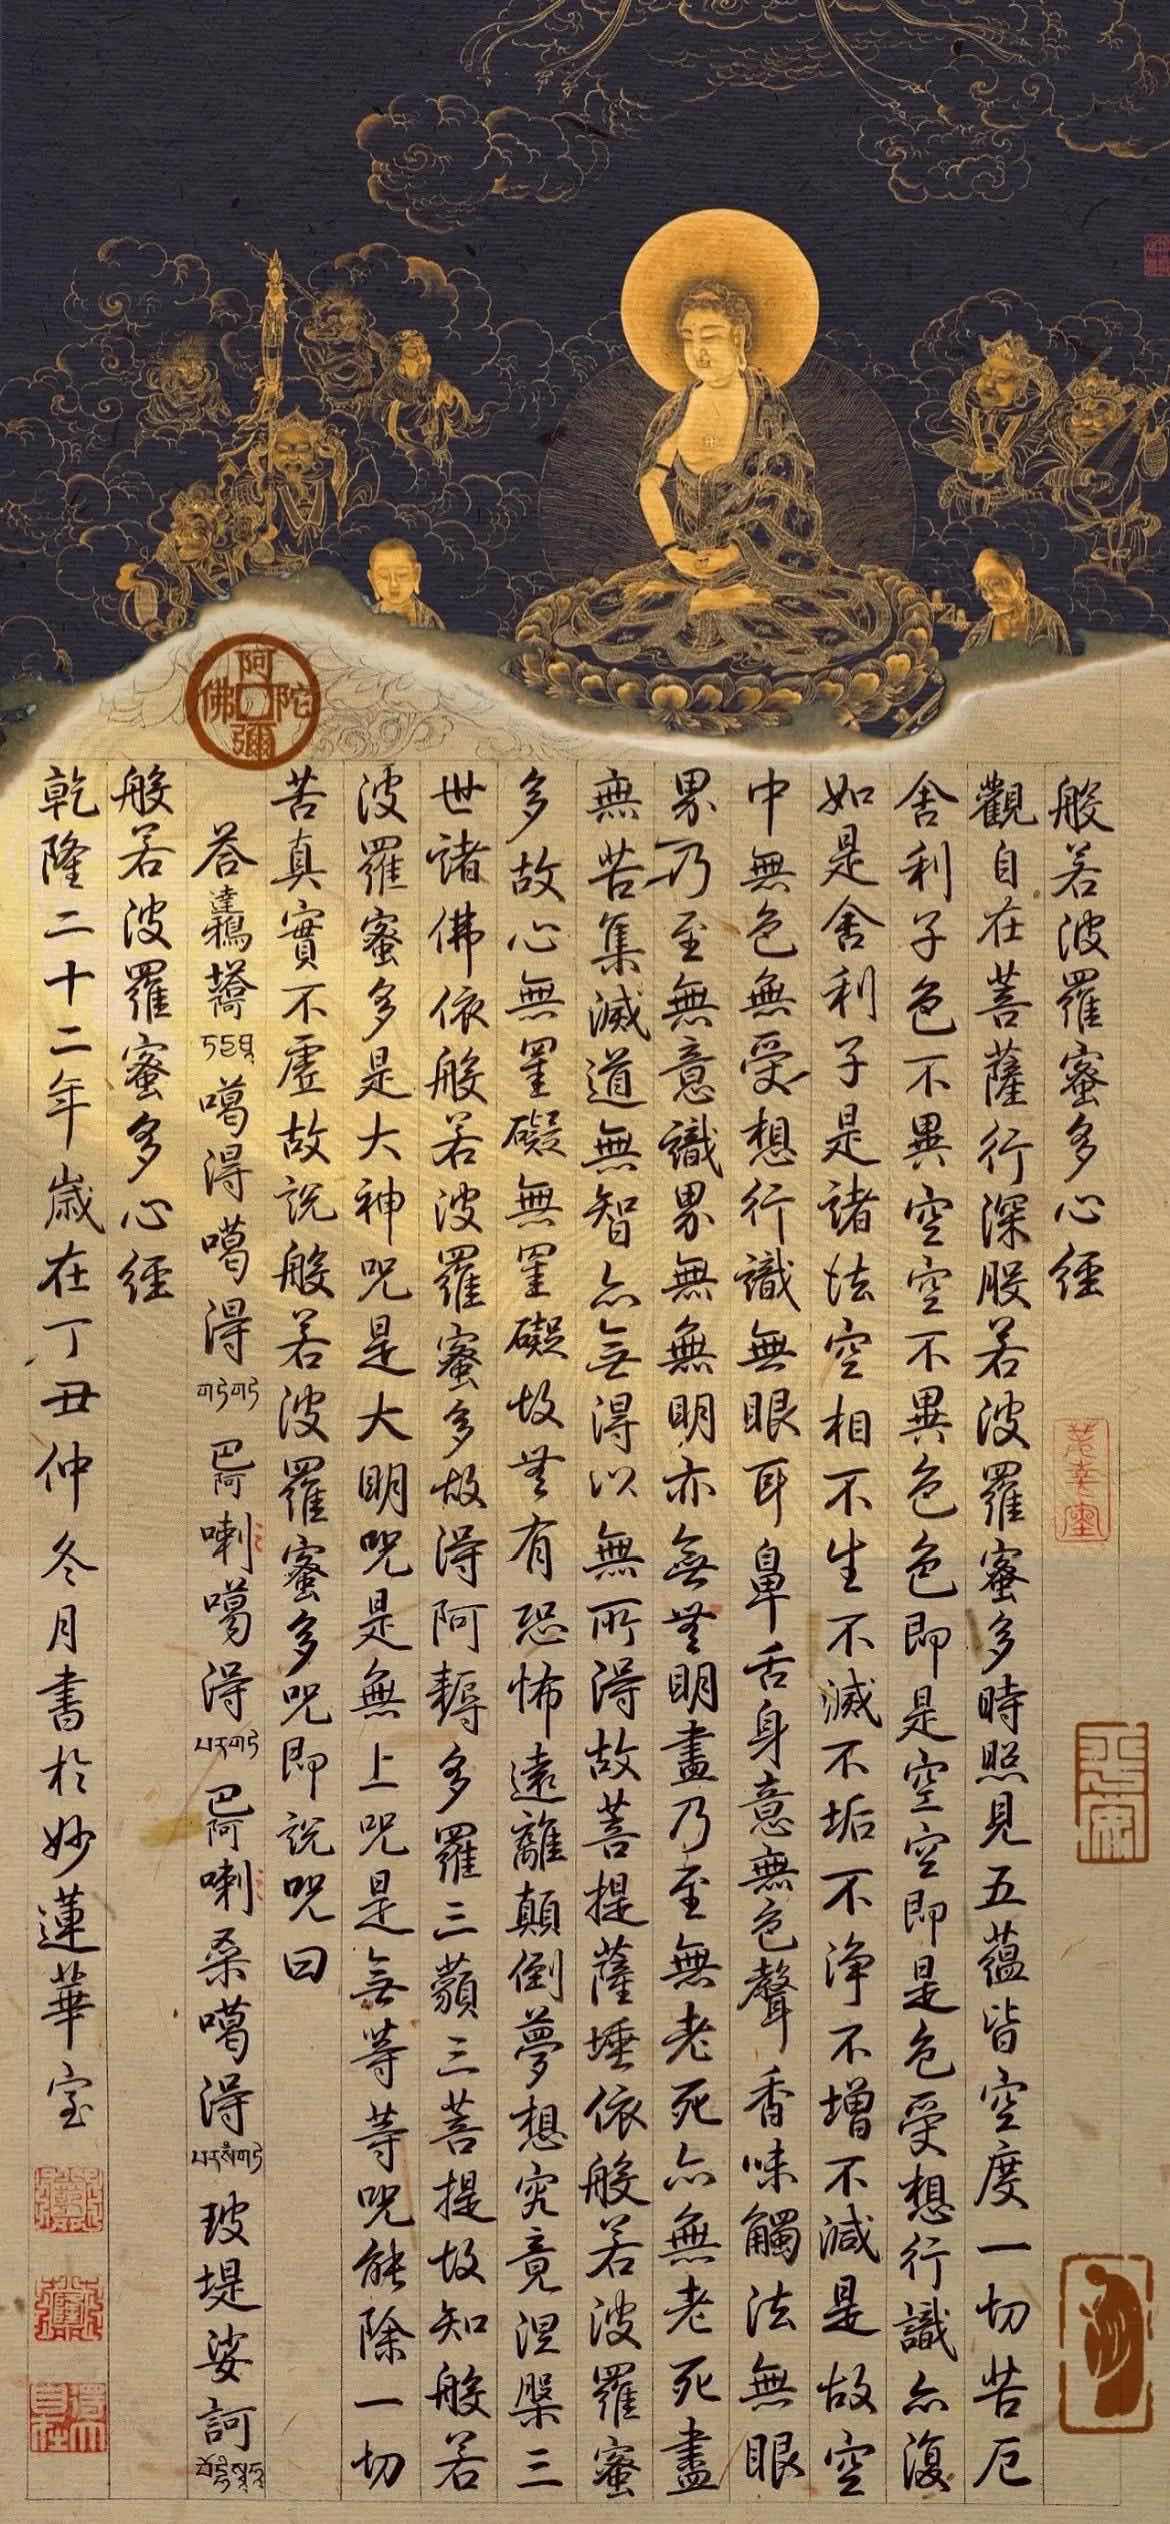 阿彌陀佛
般若波羅蜜多心經
觀自在菩薩行深般若波羅蜜多時照見五蘊皆空度一切苦厄
舍利子色不異空空不異色色即是空空即是色受想行識亦復
如是舍利子是諸法空相不生不滅不垢不淨不增不減是故空
中無色無受想行識無眼耳鼻舌身意無色聲香味觸法無眼
界乃至無意識界無無明亦無無明盡乃至無老死亦無老死盡
無苦集滅道無智亦無得以無所得故菩提薩埵依般若波羅蜜
多故心無罣礙無罣礙故無有恐怖遠離顛倒夢想究竟涅槃三
世諸佛依般若波羅蜜多故得阿耨多羅三藐三菩提故知般若
波羅蜜多是大神呪是大明呪是無上呪是無等等呪能除一切
苦真實不虛故說般若波羅蜜多呪即說呪曰
答達鴉塔 噶得噶得 གཏེགཏེ 巴阿喇噶得 པརགཏེ 巴阿喇桑噶得 པརསཾགཏེ 玻堤娑訶
般若波羅蜜多心經
乾隆二十二年歲在丁丑仲冬月書於妙蓮華室